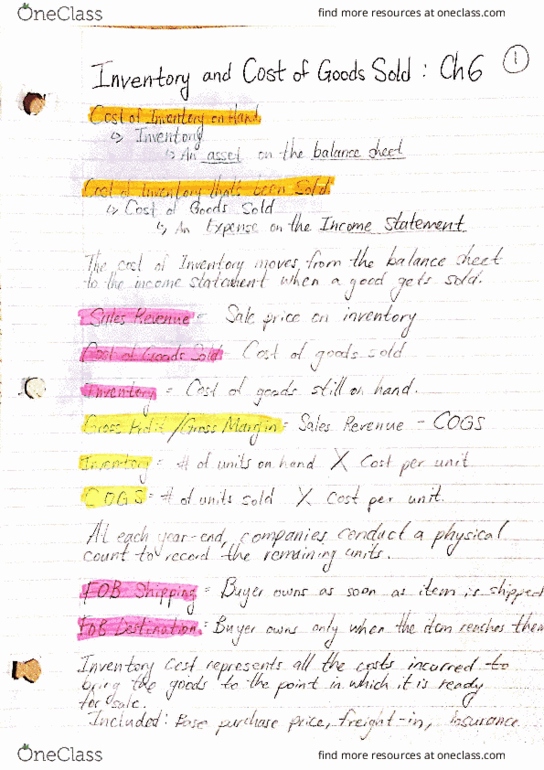 OneClass find more resources at oneclass.com
Inventory and Cost of Goods Sold : Ch6 1
Cost of Inventory on Hand
↳ Inventory
↳ An asset on the balance sheet
Cost of Inventory that's been Sold
↳ Cost of Goods Sold
↳ An Expense on the Income Statement
The cost of Inventory moves from the balance sheet
to the income statement when a good gets sold.
Sales Revenue = Sale price on inventory
Cost of Goods Sold Cost of goods sold
Inventory = Cost of goods still on hand.
Gross Profit / Gross Margin = Sales Revenue - COGS
Inventory = # of units on hand X Cost per unit
COGS = # of units sold X Cost per unit.
At each year-end, companies conduct a physical
count to record the remaining units.
FOB Shipping = Buyer owns as soon as item is shipped
FOB Destination = Buyer owns only when the item reaches them
Inventory cost represents all the costs incurred to
bring the goods to the point in which it is ready
for sale.
Included: Base purchase price, freight-in, insurance
OneClass find more resources at oneclass.com